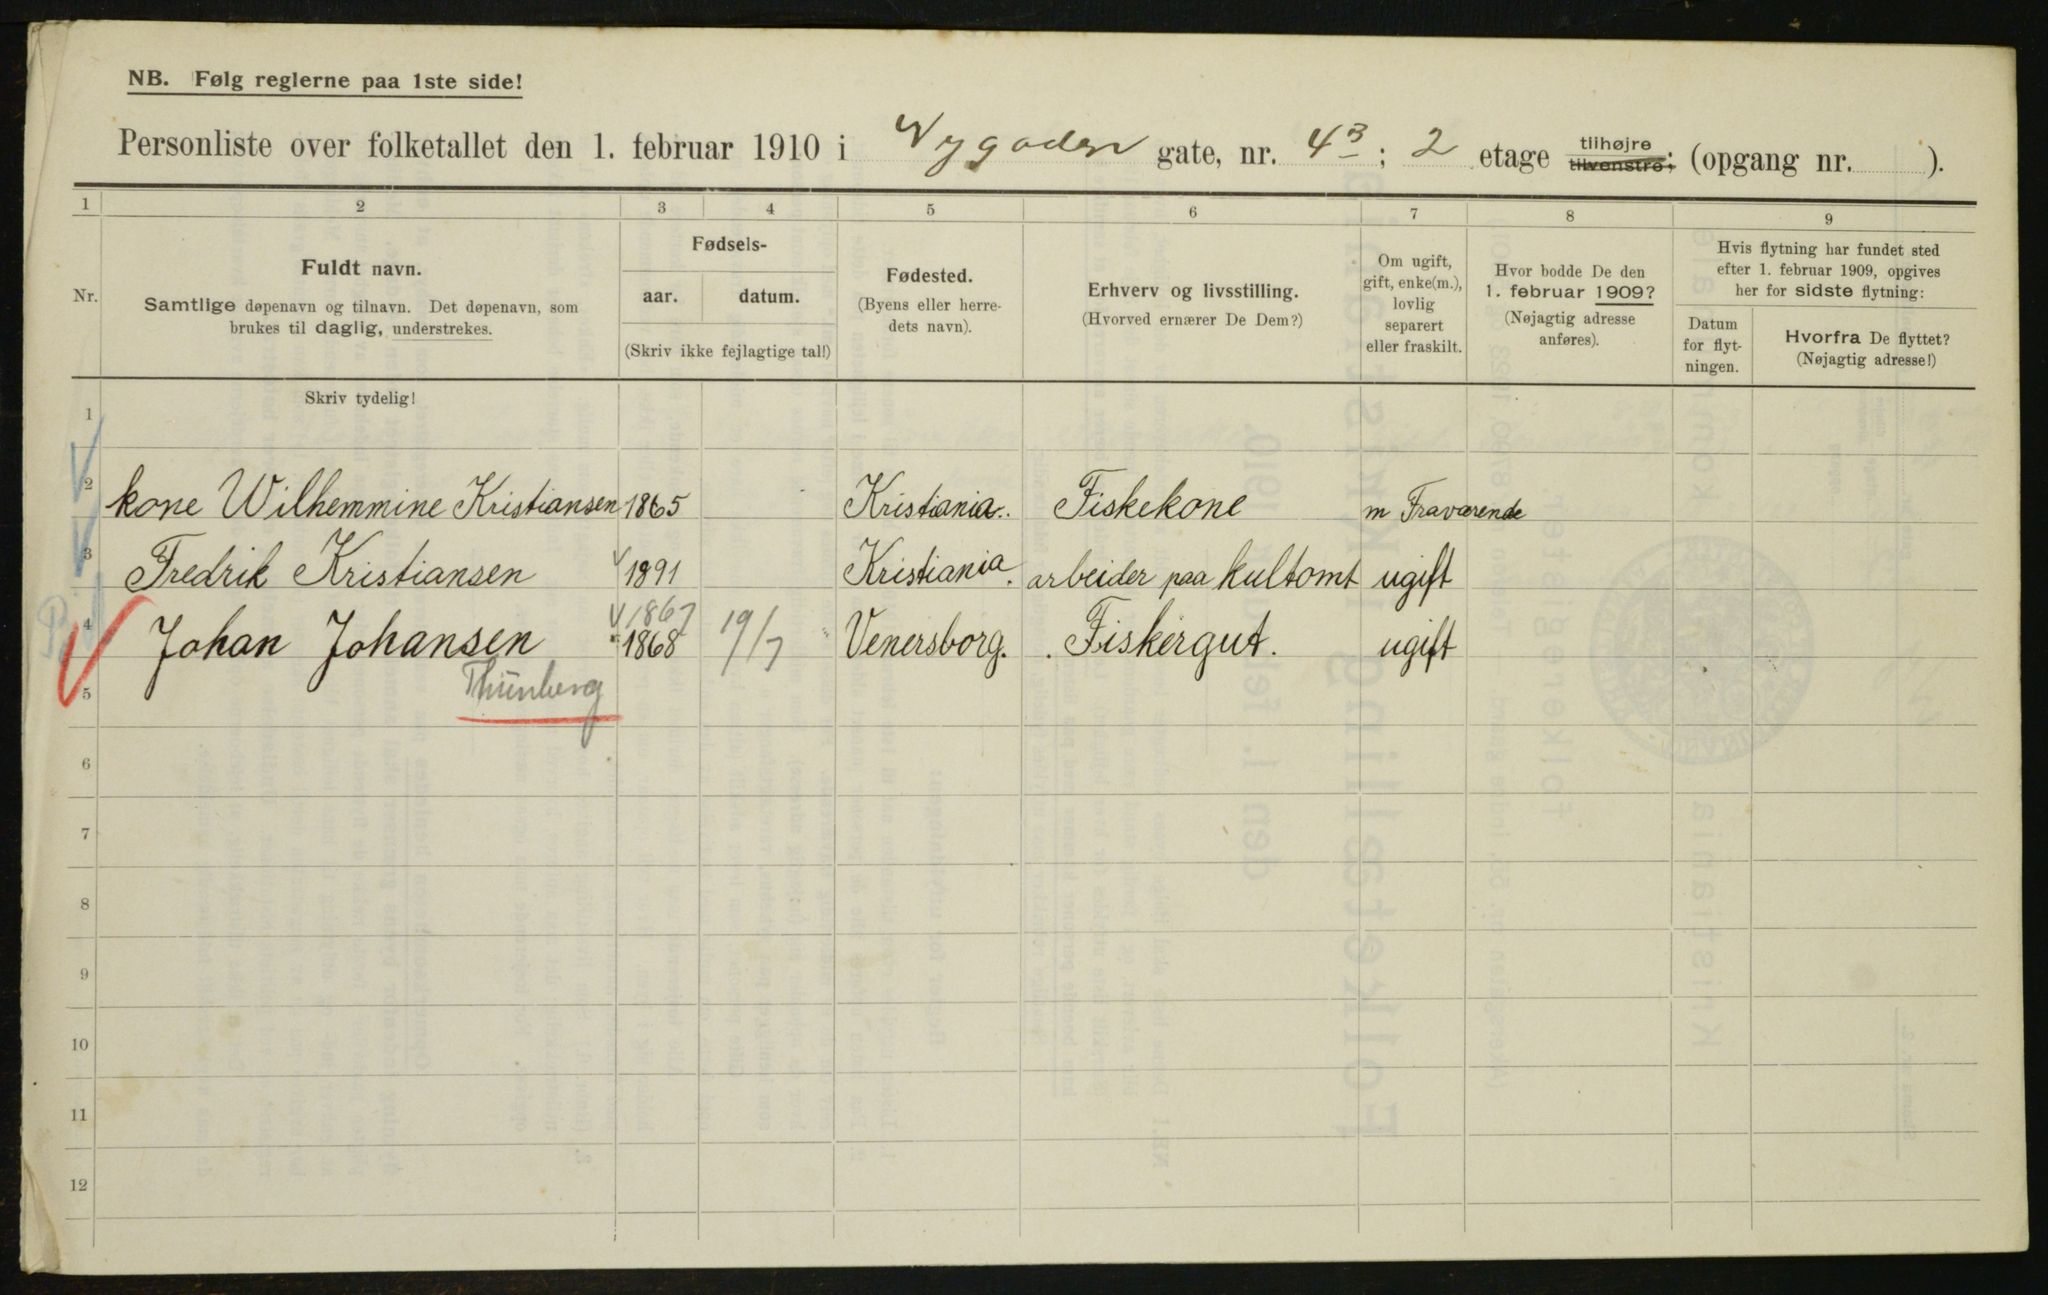 NB. Følg reglerne paa 1ste side!
Personliste over folketallet den 1. februar 1910 i Nygaden gate, nr. 4B; 2 etage tilhøjre tilvenstre; (opgang nr. ).
1 2 3 4 5 6 7 8 9
Nr.
Fuldt navn.
Samtlige døpenavn og tilnavn. Det døpenavn, som
brukes til daglig, understrekes.
Fødsels-
aar. datum.
(Skriv ikke fejlagtige tal!)
Fødested.
(Byens eller herre-
dets navn).
Erhverv og livsstilling.
(Hvorved ernærer De Dem?)
Om ugift,
gift, enke(m.),
lovlig
separert
eller fraskilt.
Hvor bodde De den
1. februar 1909?
(Nøjagtig adresse
anføres).
Hvis flytning har fundet sted
efter 1. februar 1909, opgives
her for sidste flytning:
Datum
for flyt-
ningen.
Hvorfra De flyttet?
(Nøjagtig adresse!)
Skriv tydelig!
1
2 kone Wilhemmine Kristiansen 1865 Kristiania. Fiskekone m Fraværende
3 Fredrik Kristiansen 1891 Kristiania. arbeider paa kultomt ugift
1867
4 Johan Johansen 1868 19/7 Venersborg. Fiskergut. ugift
Thunberg
5
6
7
8
9
10
11
12